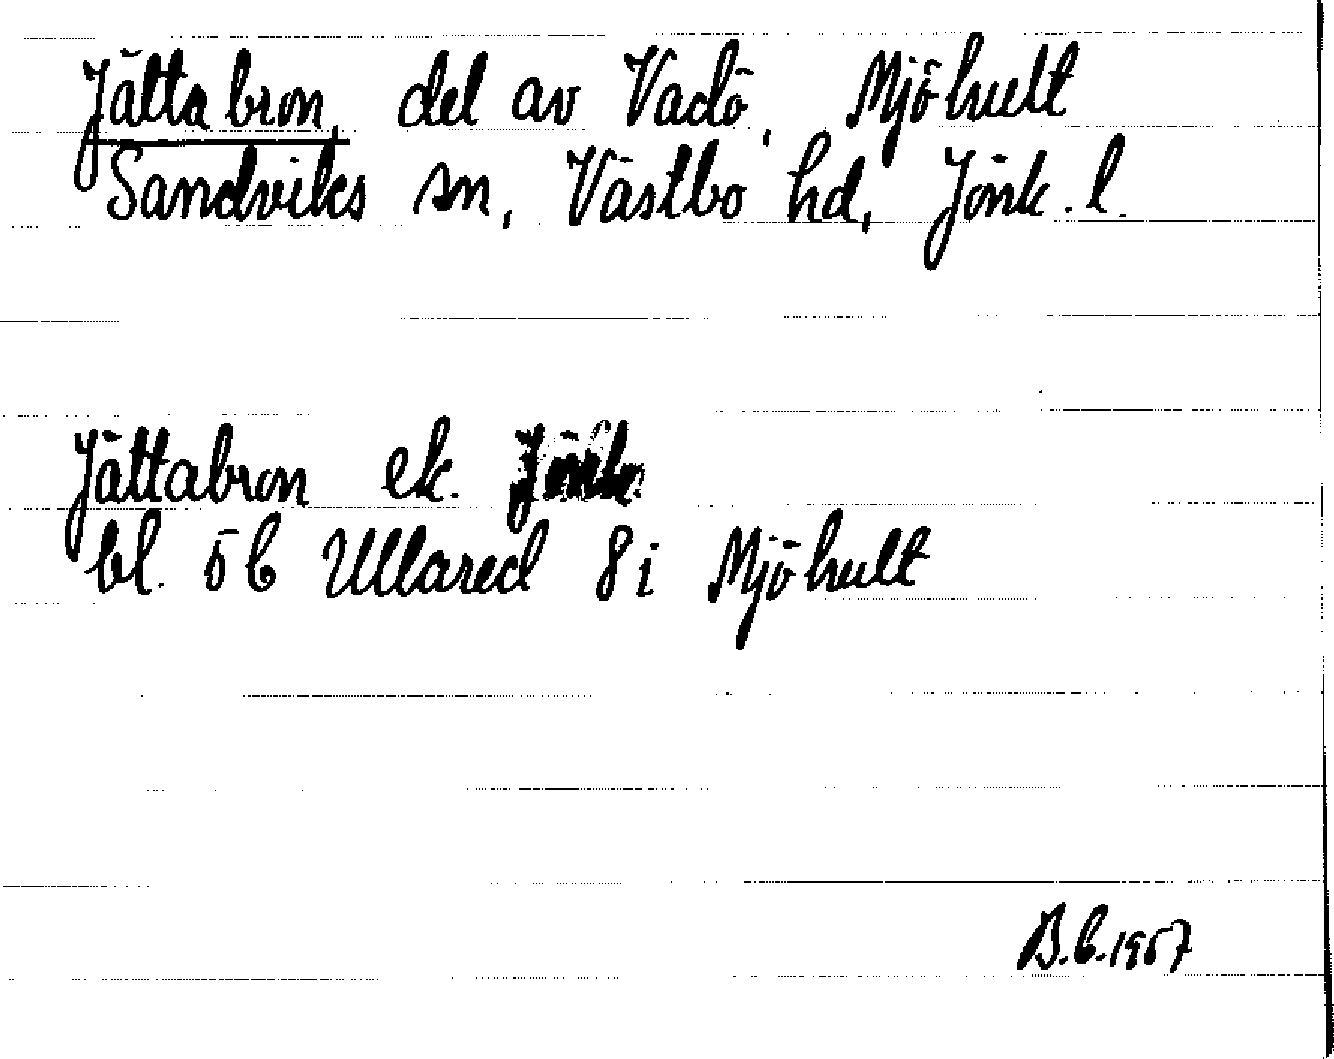 Jättabron, del av Vadö, Mjöhult
Sandviks sn, Västbo hd, Jönk. l.
Jättabron ek.
bl. 5b Ullared 8i Mjöhult
B.C.1957